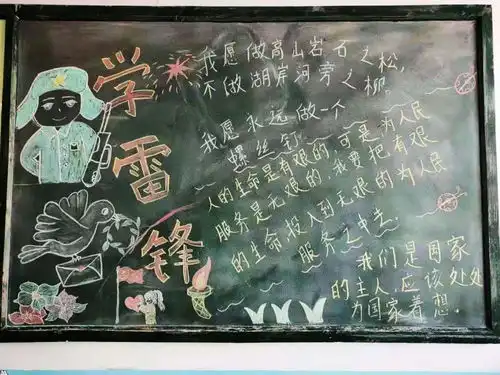 学雷锋
我愿做高山岩石之松,
不做湖岸河旁之柳。
我愿永远做一个
螺丝钉。
人的生命是有限的,可是,为人民
服务是无限的,我要把有限
的生命,投入到无限的为人民
服务之中去.
我们是国家
的主人,应该处处
为国家着想.